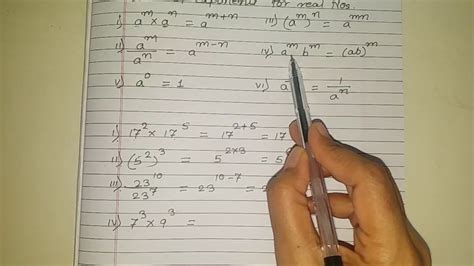 Exponents for real Nos.
i) a^m × a^n = a^{m+n} iii) (a^m)^n = a^{mn}
ii) a^m/a^n = a^{m-n} iv) a^m b^m = (ab)^m
v) a^0 = 1 vi) a = 1/a^n
i) 17^2 × 17^5 = 17^{2+5} = 17
ii) (5^2)^3 = 5^{2×3} = 5
iii) 23^10/23^7 = 23^{10-7} =
iv) 7^3 × 9^3 =